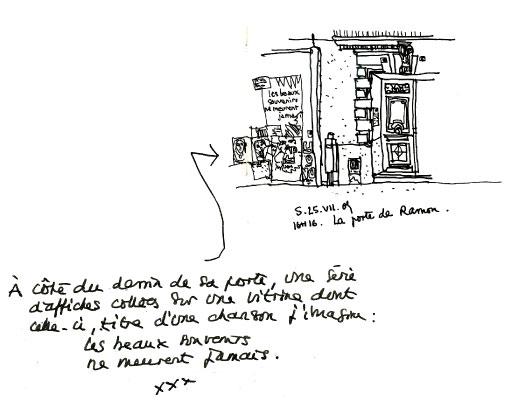 les beaux
souvenirs
ne meurent
jamais
S.25.VII.09
16H16. La porte de Ramon.
À côté du dessin de sa porte, une série
d'affiches collées sur une vitrine dont
celle-ci, titre d'une chanson j'imagine :
les beaux souvenirs
ne meurent jamais.
xxx